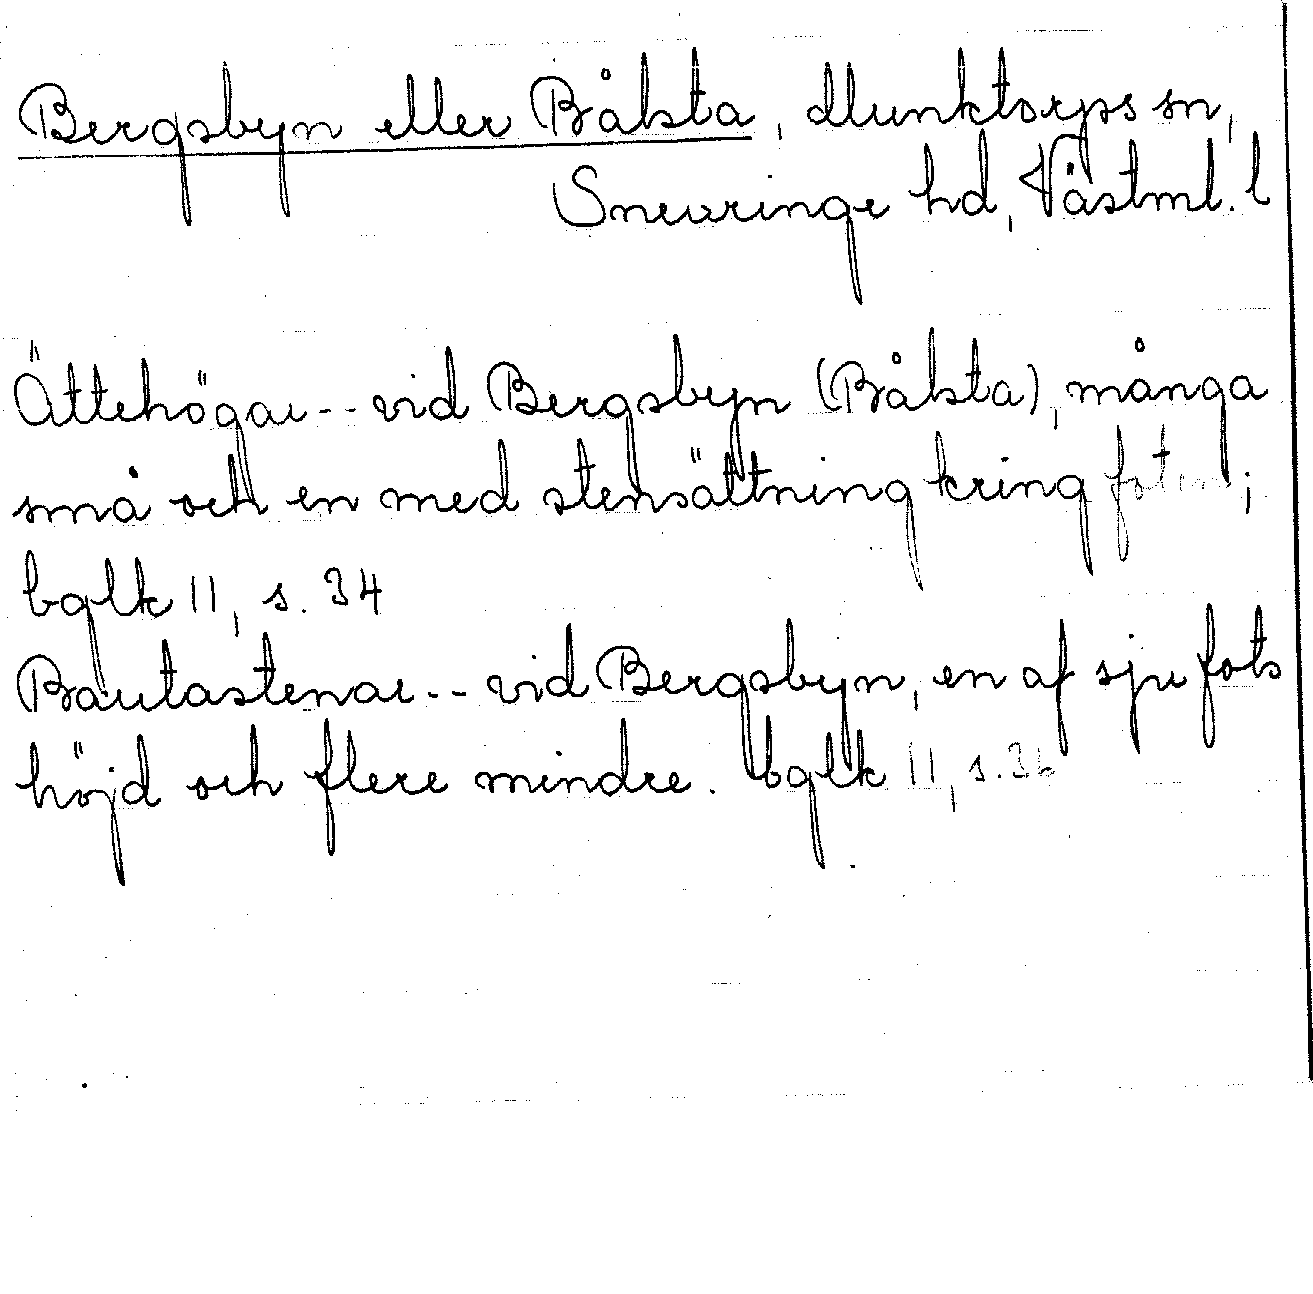 Bergsbyn eller Bålsta, Munktorps sn,
Snevringe hd, Västml. l
Ättehögar -- vid Bergsbyn (Bålsta), många
små och en med stensättning kring foten;
bglk II, s. 34
Bautastenar -- vid Bergsbyn, en af sju fots
höjd och flere mindre. bglk II, s.